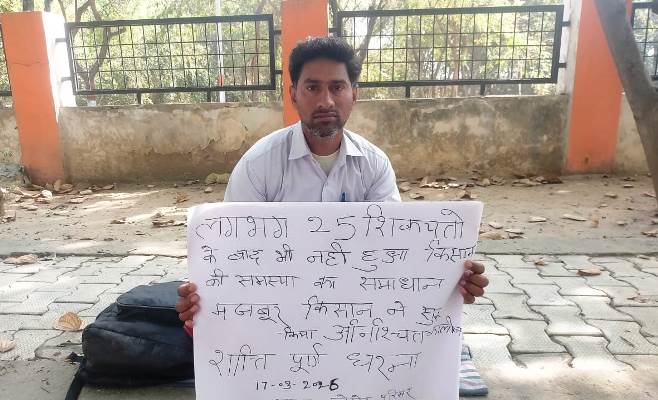 लगभग 25 शिकयतो
के बाद भी नहीं हुआ किसान
की समस्या का समाधान
मजबूर किसान ने सुरू
किया अनिश्चित कालीन
शान्ति पूर्ण धरना
17-03-2026